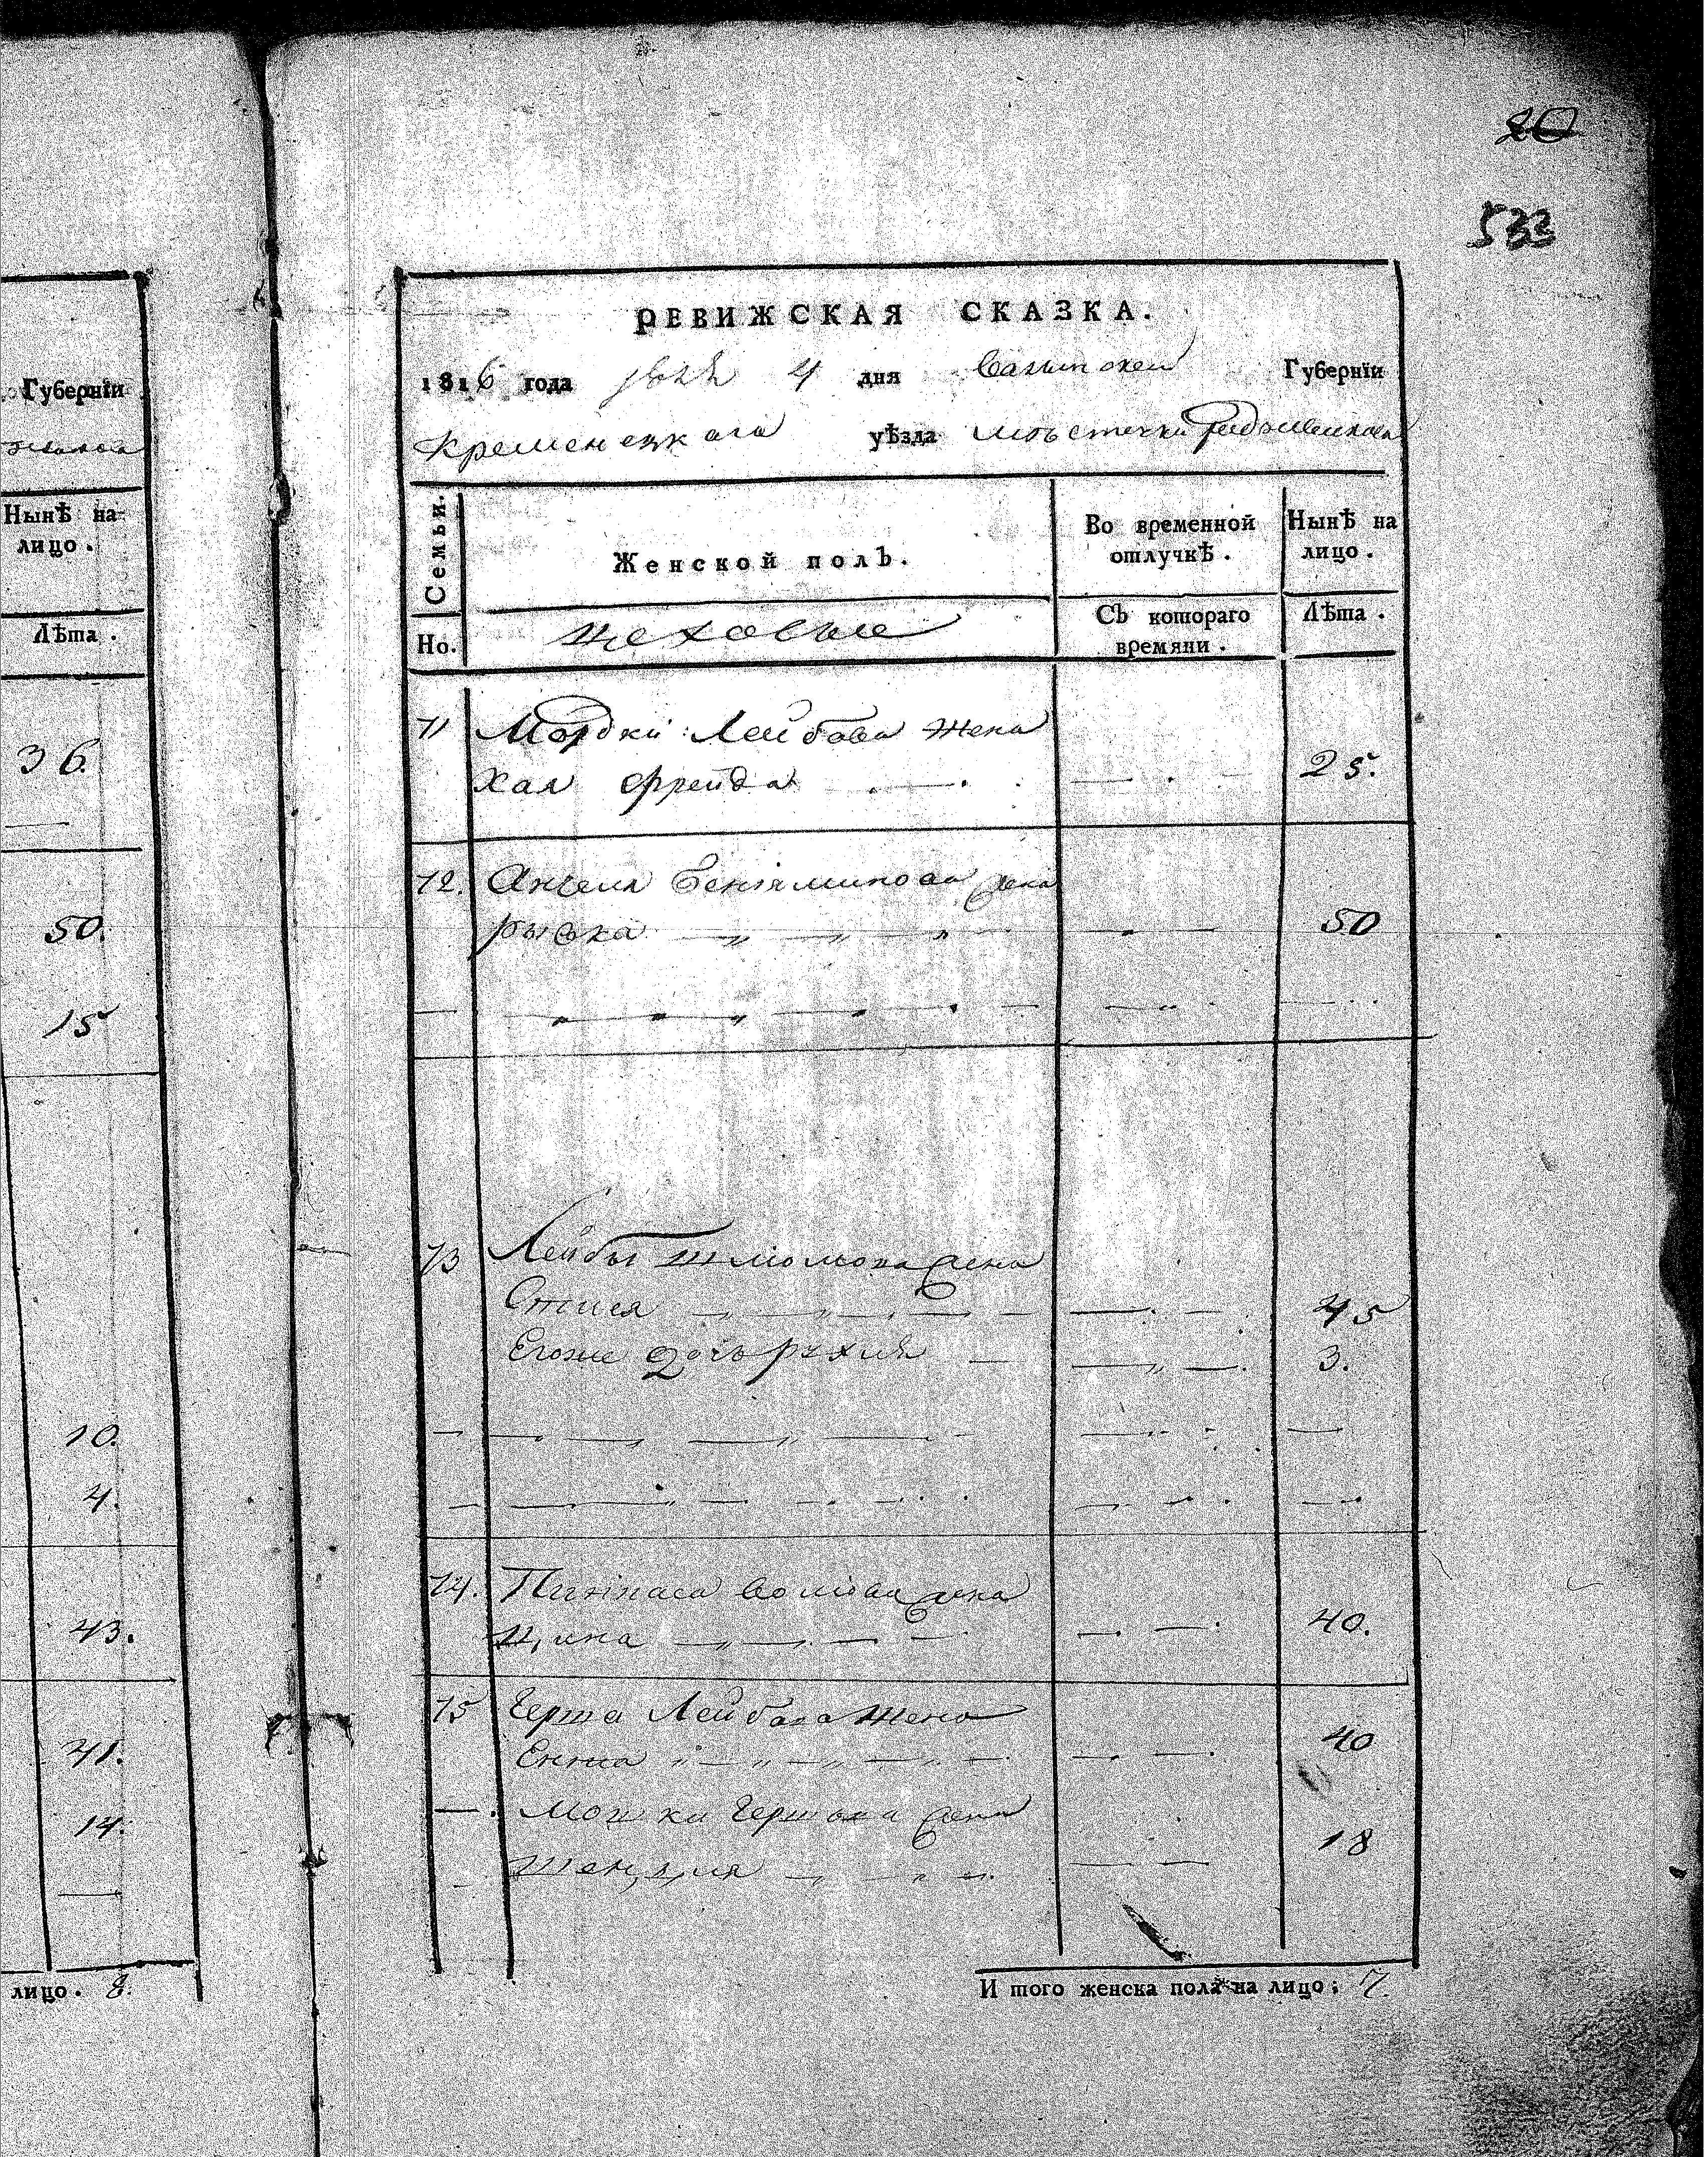 20
533
Губернїи
Нынѣ на
лицо.
Лѣта.
36.
50.
15
10.
4.
43.
41.
14.
лицо. 8.
РЕВИЖСКАЯ СКАЗКА.
1816 года 4 дня Волынской Губернїи
Кременецкаго уѣзда местечка
Семьи.
Но.
Женской полъ.
Во временной
отлучкѣ.
Нынѣ на
лицо.
цеховые
Съ котораго
времяни.
Лѣта.
71 Мордки Лейбова жена
Хая Фрейда 25.
72. Анчеля Бенияминова жена
Рыска 50
73 Лейбы Шлиомова жена
45
Егоже дочь Рухля 3.
74. Пинкаса Волиова жена
Цина 40.
75 Герша Лейбова жена
Ента 40
Мошка Гершова жена
Шенцля 18
И того женска пола на лицо: 7.